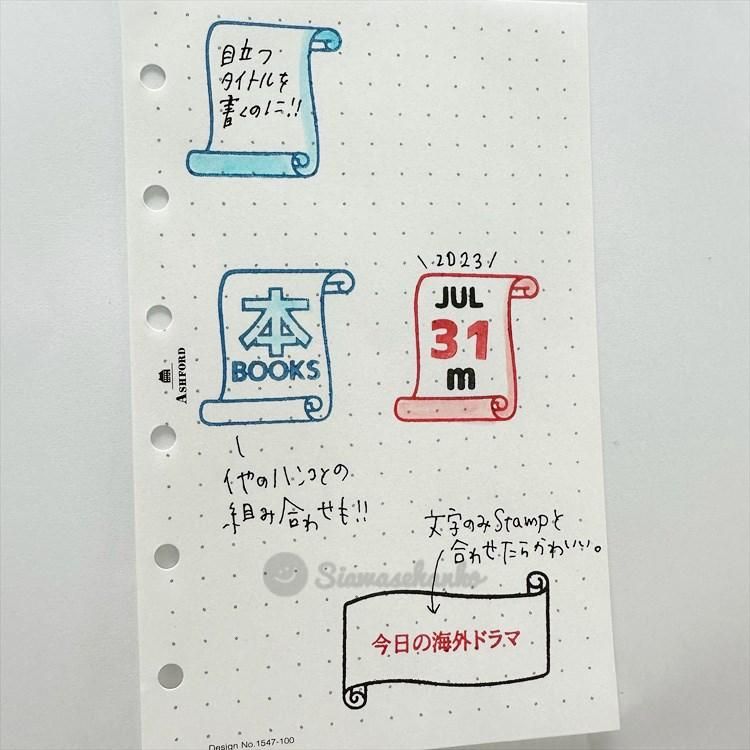 目立つ
タイトルを
書くのに!!
本
BOOKS
\2023/
JUL
31
m
ASHFORD
他のハンコとの
組み合わせも!!
文字のみStampと
合わせたらかわいい。
Siawasekanko
今日の海外ドラマ
Design No.1547-100